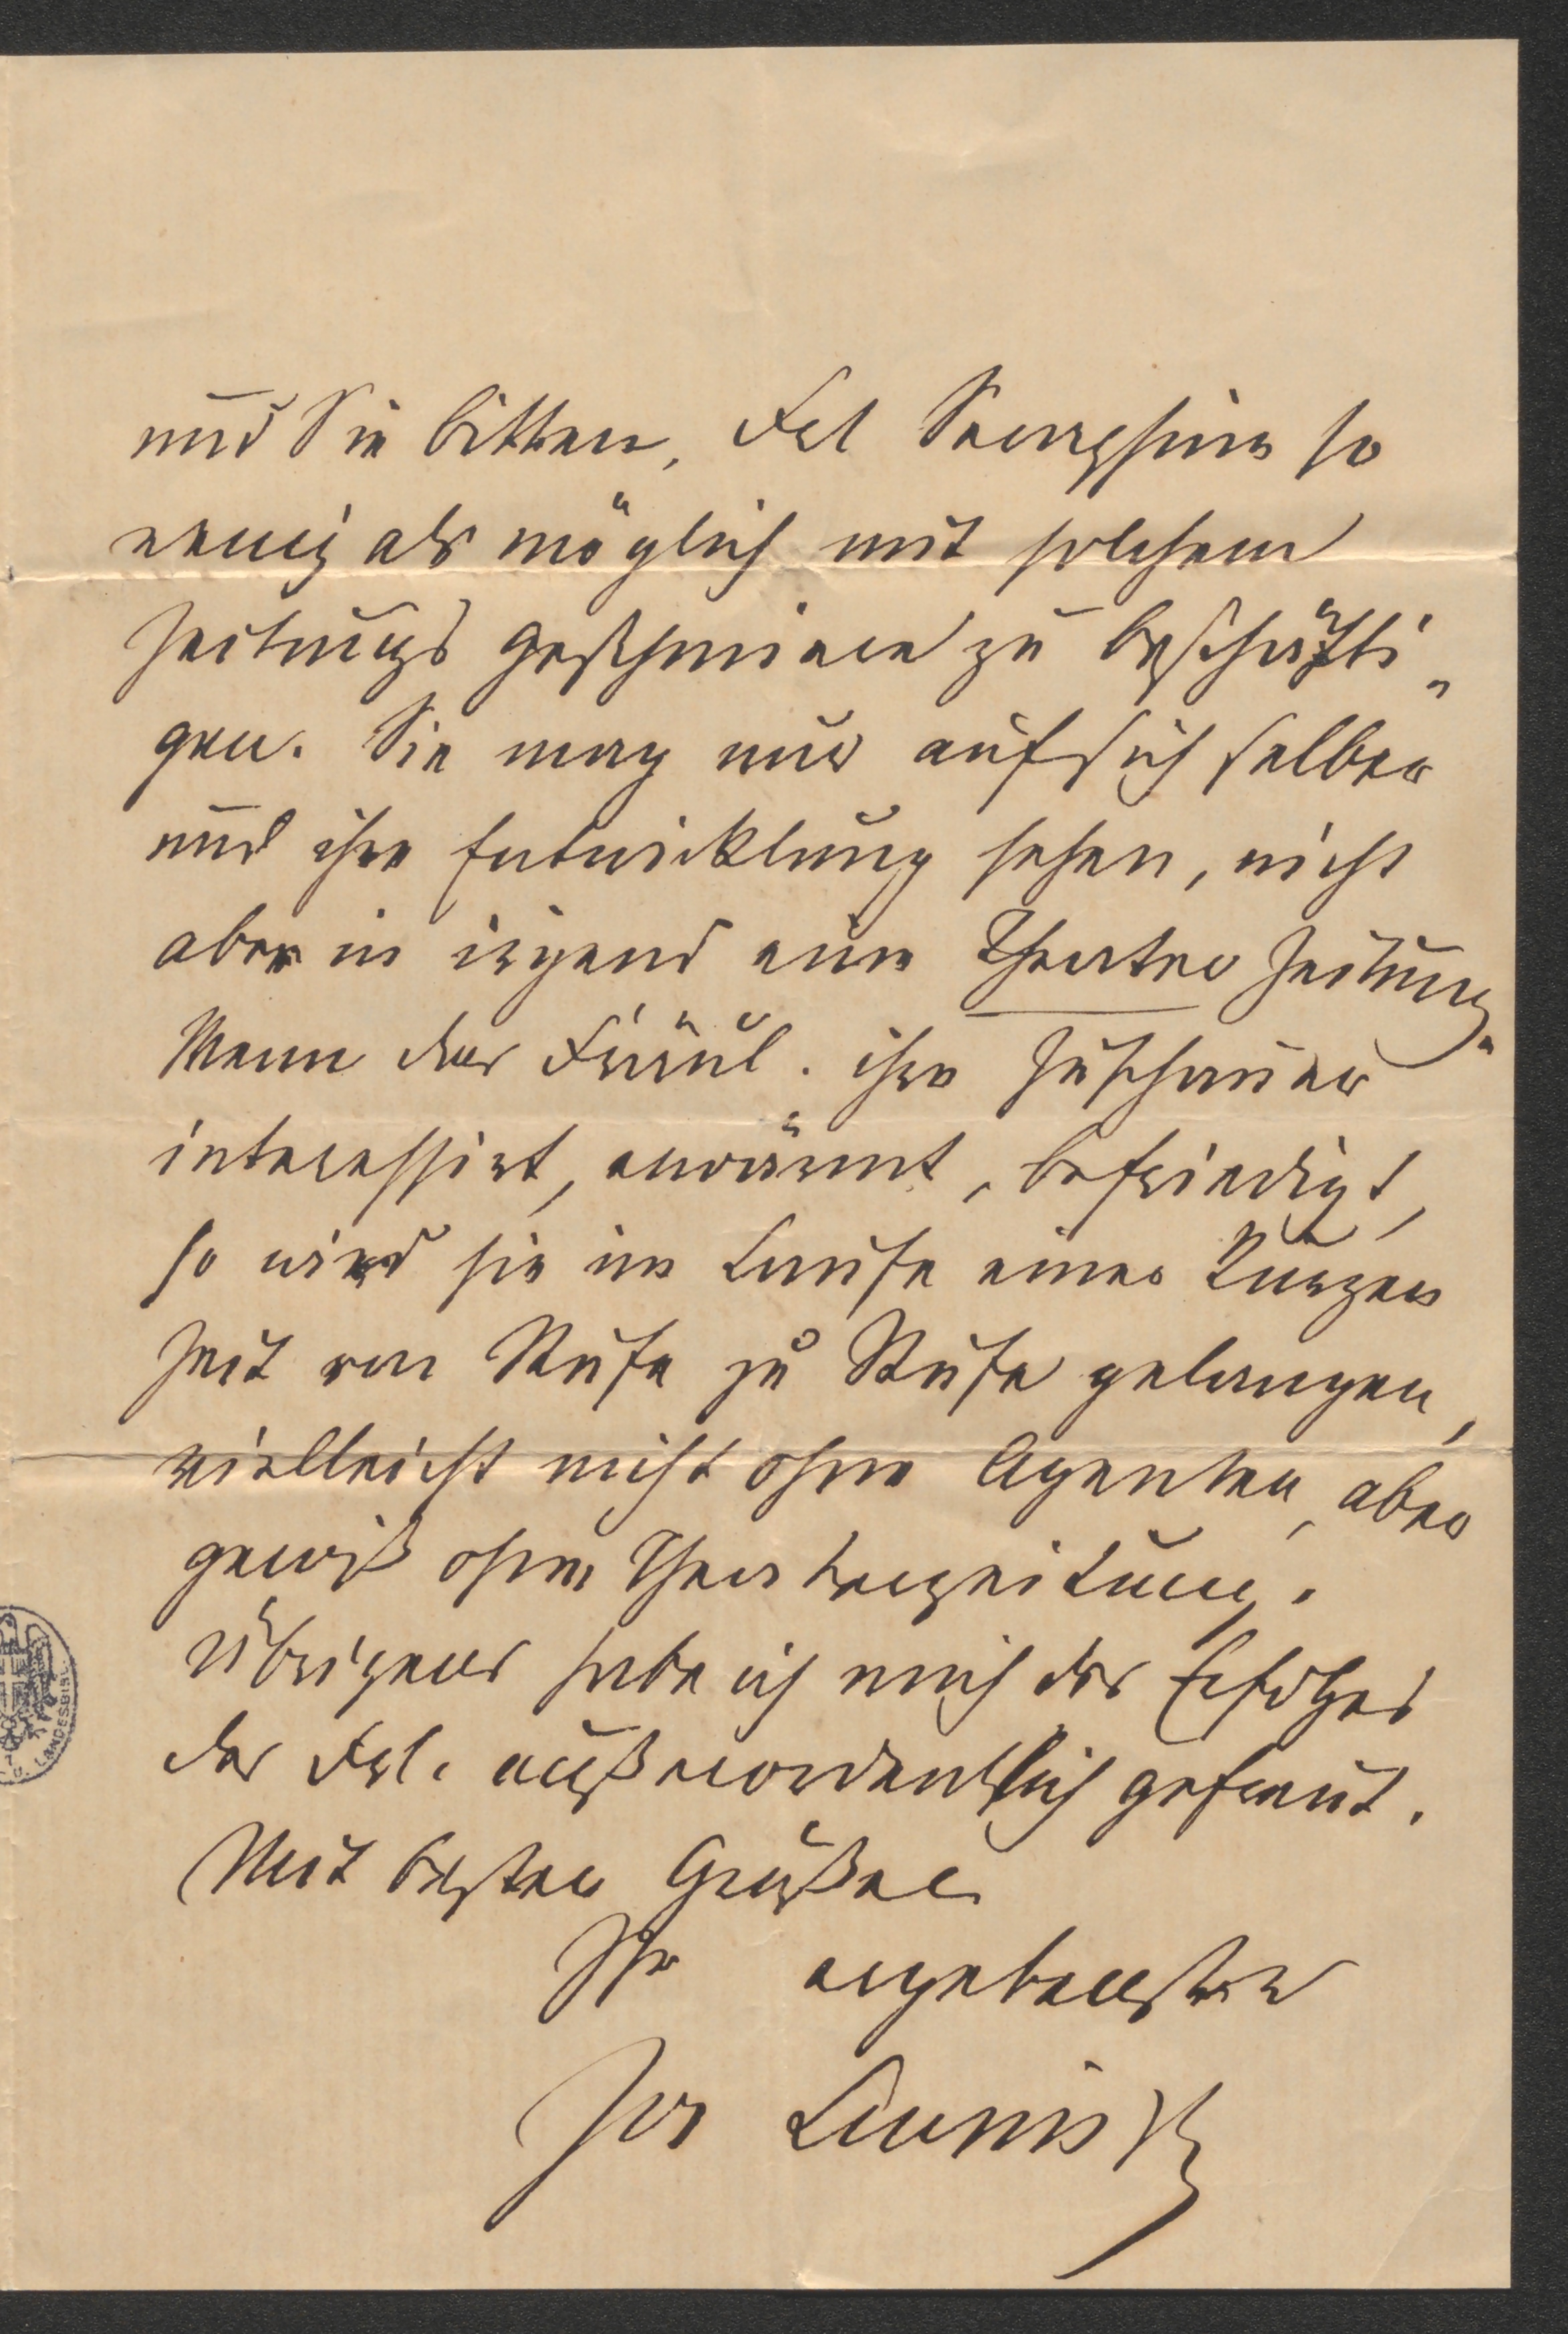 und Sie bitten, Frl so
wenig als möglich mit solchem
Zeitungs Geschmiere zu beschäfti„
gen. Sie mag nur auf sich selber
und ihre Entwicklung sehen, nicht
aber in irgend eine Theater Zeitung.
Wenn das Fräul. ihre Zuschauer
interessirt, erwärmt, befriedigt,
so wird sie im Laufe einer kurzen
Zeit von Stufe zu Stufe gelangen,
vielleicht nicht ohne Agenten, aber
gewiß ohne Theaterzeitung.
Übrigens habe ich mich des Erfolges
des Frl. außerordentlich gefreut.
Mit besten Grüßen
Ihr ergebenster
Jos
LANDESBIBL